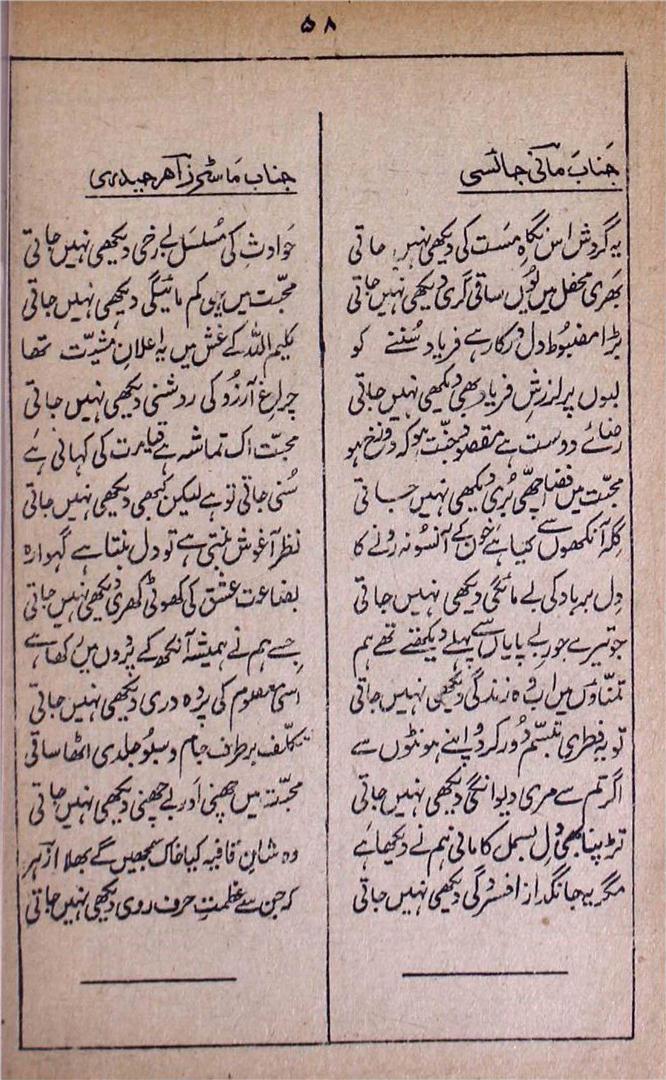 ۵۸
جناب مانی جائسی
یہ گردش اس نگاہِ مست کی دیکھی نہیں جاتی
بھری محفل میں یوں ساقی گری دیکھی نہیں جاتی
بڑا مضبوط دل درکار ہے فریاد سُننے کو
لبوں پر لرزشِ فریاد بھی دیکھی نہیں جاتی
رضائے دوست ہے مقصود جنّت ہو کہ دوزخ ہو
محبّت میں فضا اچھّی بُری دیکھی نہیں جاتی
گلہ آنکھوں سے کیا ہے خون کے آنسو نہ رونے کا
دلِ برباد کی بے مائگی دیکھی نہیں جاتی
جو تیرے جورِ بے پایاں سے پہلے دیکھتے تھے ہم
تمنّاؤں میں اب وہ زندگی دیکھی نہیں جاتی
تو یہ فطری تبسّم دُور کر دو اپنے ہونٹوں سے
اگر تم سے مری دیوانگی دیکھی نہیں جاتی
تڑپنا بھی دلِ بسمل کا مانی ہم نے دیکھا ہے
مگر یہ جانگداز افسردگی دیکھی نہیں جاتی
جناب ماسٹر زاہر حیدری
حوادث کی مُسلسل بے رخی دیکھی نہیں جاتی
محبّت میں یہ کم مائیگی دیکھی نہیں جاتی
کلیم اللہ کے غش میں یہ اعلانِ مشیّت تھا
چراغِ آرزو کی روشنی دیکھی نہیں جاتی
محبّت اک تماشہ ہے قیامت کی کہانی ہے
سُنی جاتی تو ہے لیکن کبھی دیکھی نہیں جاتی
نظر آغوش بنتی ہے تو دل بنتا ہے گہوارہ
بضاعت عشق کی کھوٹی کھری دیکھی نہیں جاتی
جسے ہم نے ہمیشہ آنکھ کے پردوں میں رکھا ہے
اسی معصوم کی پردہ دری دیکھی نہیں جاتی
تکلّف بر طرف جام و سبو جلدی اٹھا ساقی
محبّت میں چھنی اور بے چھنی دیکھی نہیں جاتی
وہ شانِ قافیہ کیا خاک سمجھیں گے بھلا ازہر
کہ جن سے عظمتِ حرف روی دیکھی نہیں جاتی